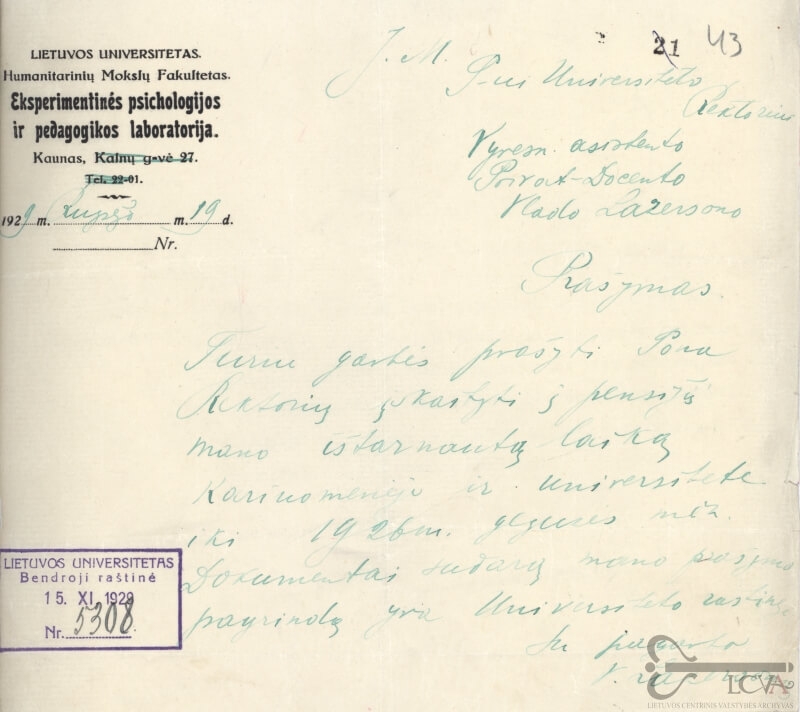 LIETUVOS UNIVERSITETAS.
Humanitarinių Mokslų Fakultetas.
Eksperimentinės psichologijos
ir pedagogikos laboratorija.
Kaunas, Kalnų g-vė 27.
Tel. 22-01.
1929 m. m. 19 d.
Nr.
21 43
J. M.
P-ui Universiteto
Rektoriui
Vyresn. asistento
Privat-Docento
Vlado Lazersono
Prašymas.
Turiu garbės prašyti Pona
Rektorių įskaityti į pensiją
mano ištarnautą laiką
Kariuomenėje ir universitete
iki 1926 m. gegužės mėn.
Dokumentai sudarą mano prašymo
pagrindą yra Universiteto raštinėje
Su pagarba
LIETUVOS UNIVERSITETAS
Bendroji raštinė
15. XI. 1929
Nr. 5308
LCVA
LIETUVOS CENTRINIS VALSTYBĖS ARCHYVAS